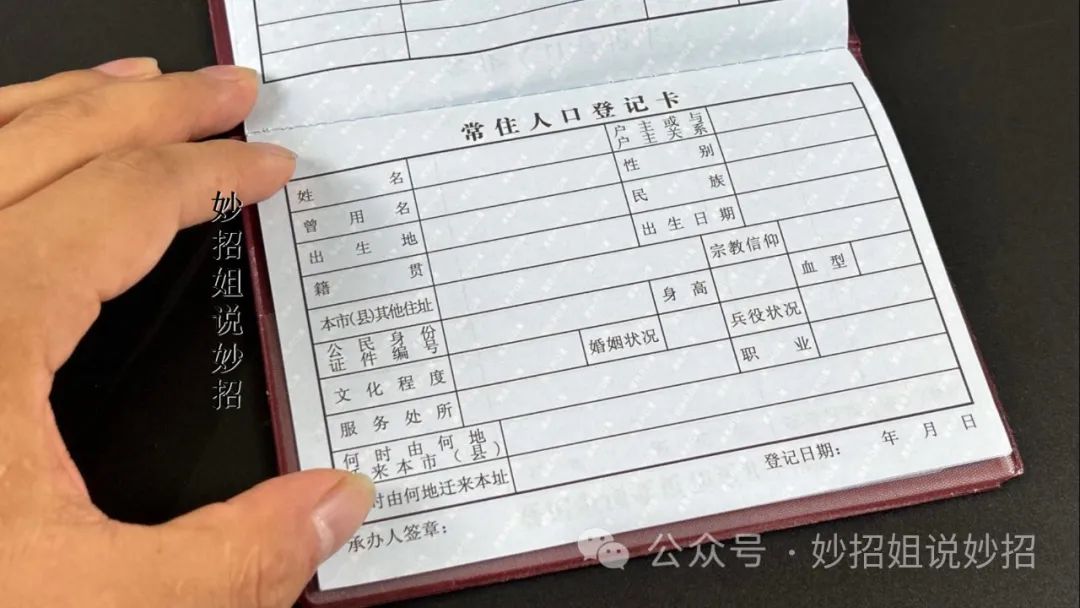 常住人口登记卡
姓名
户主或与户主关系
曾用名
性别
出生地
民族
籍贯
出生日期
本市(县)其他住址
宗教信仰
公民身份证件编号
身高
血型
文化程度
婚姻状况
兵役状况
服务处所
职业
何时由何地
来本市(县)
时由何地迁来本址
承办人签章:
登记日期: 年 月 日
妙招姐说妙招
公众号·妙招姐说妙招